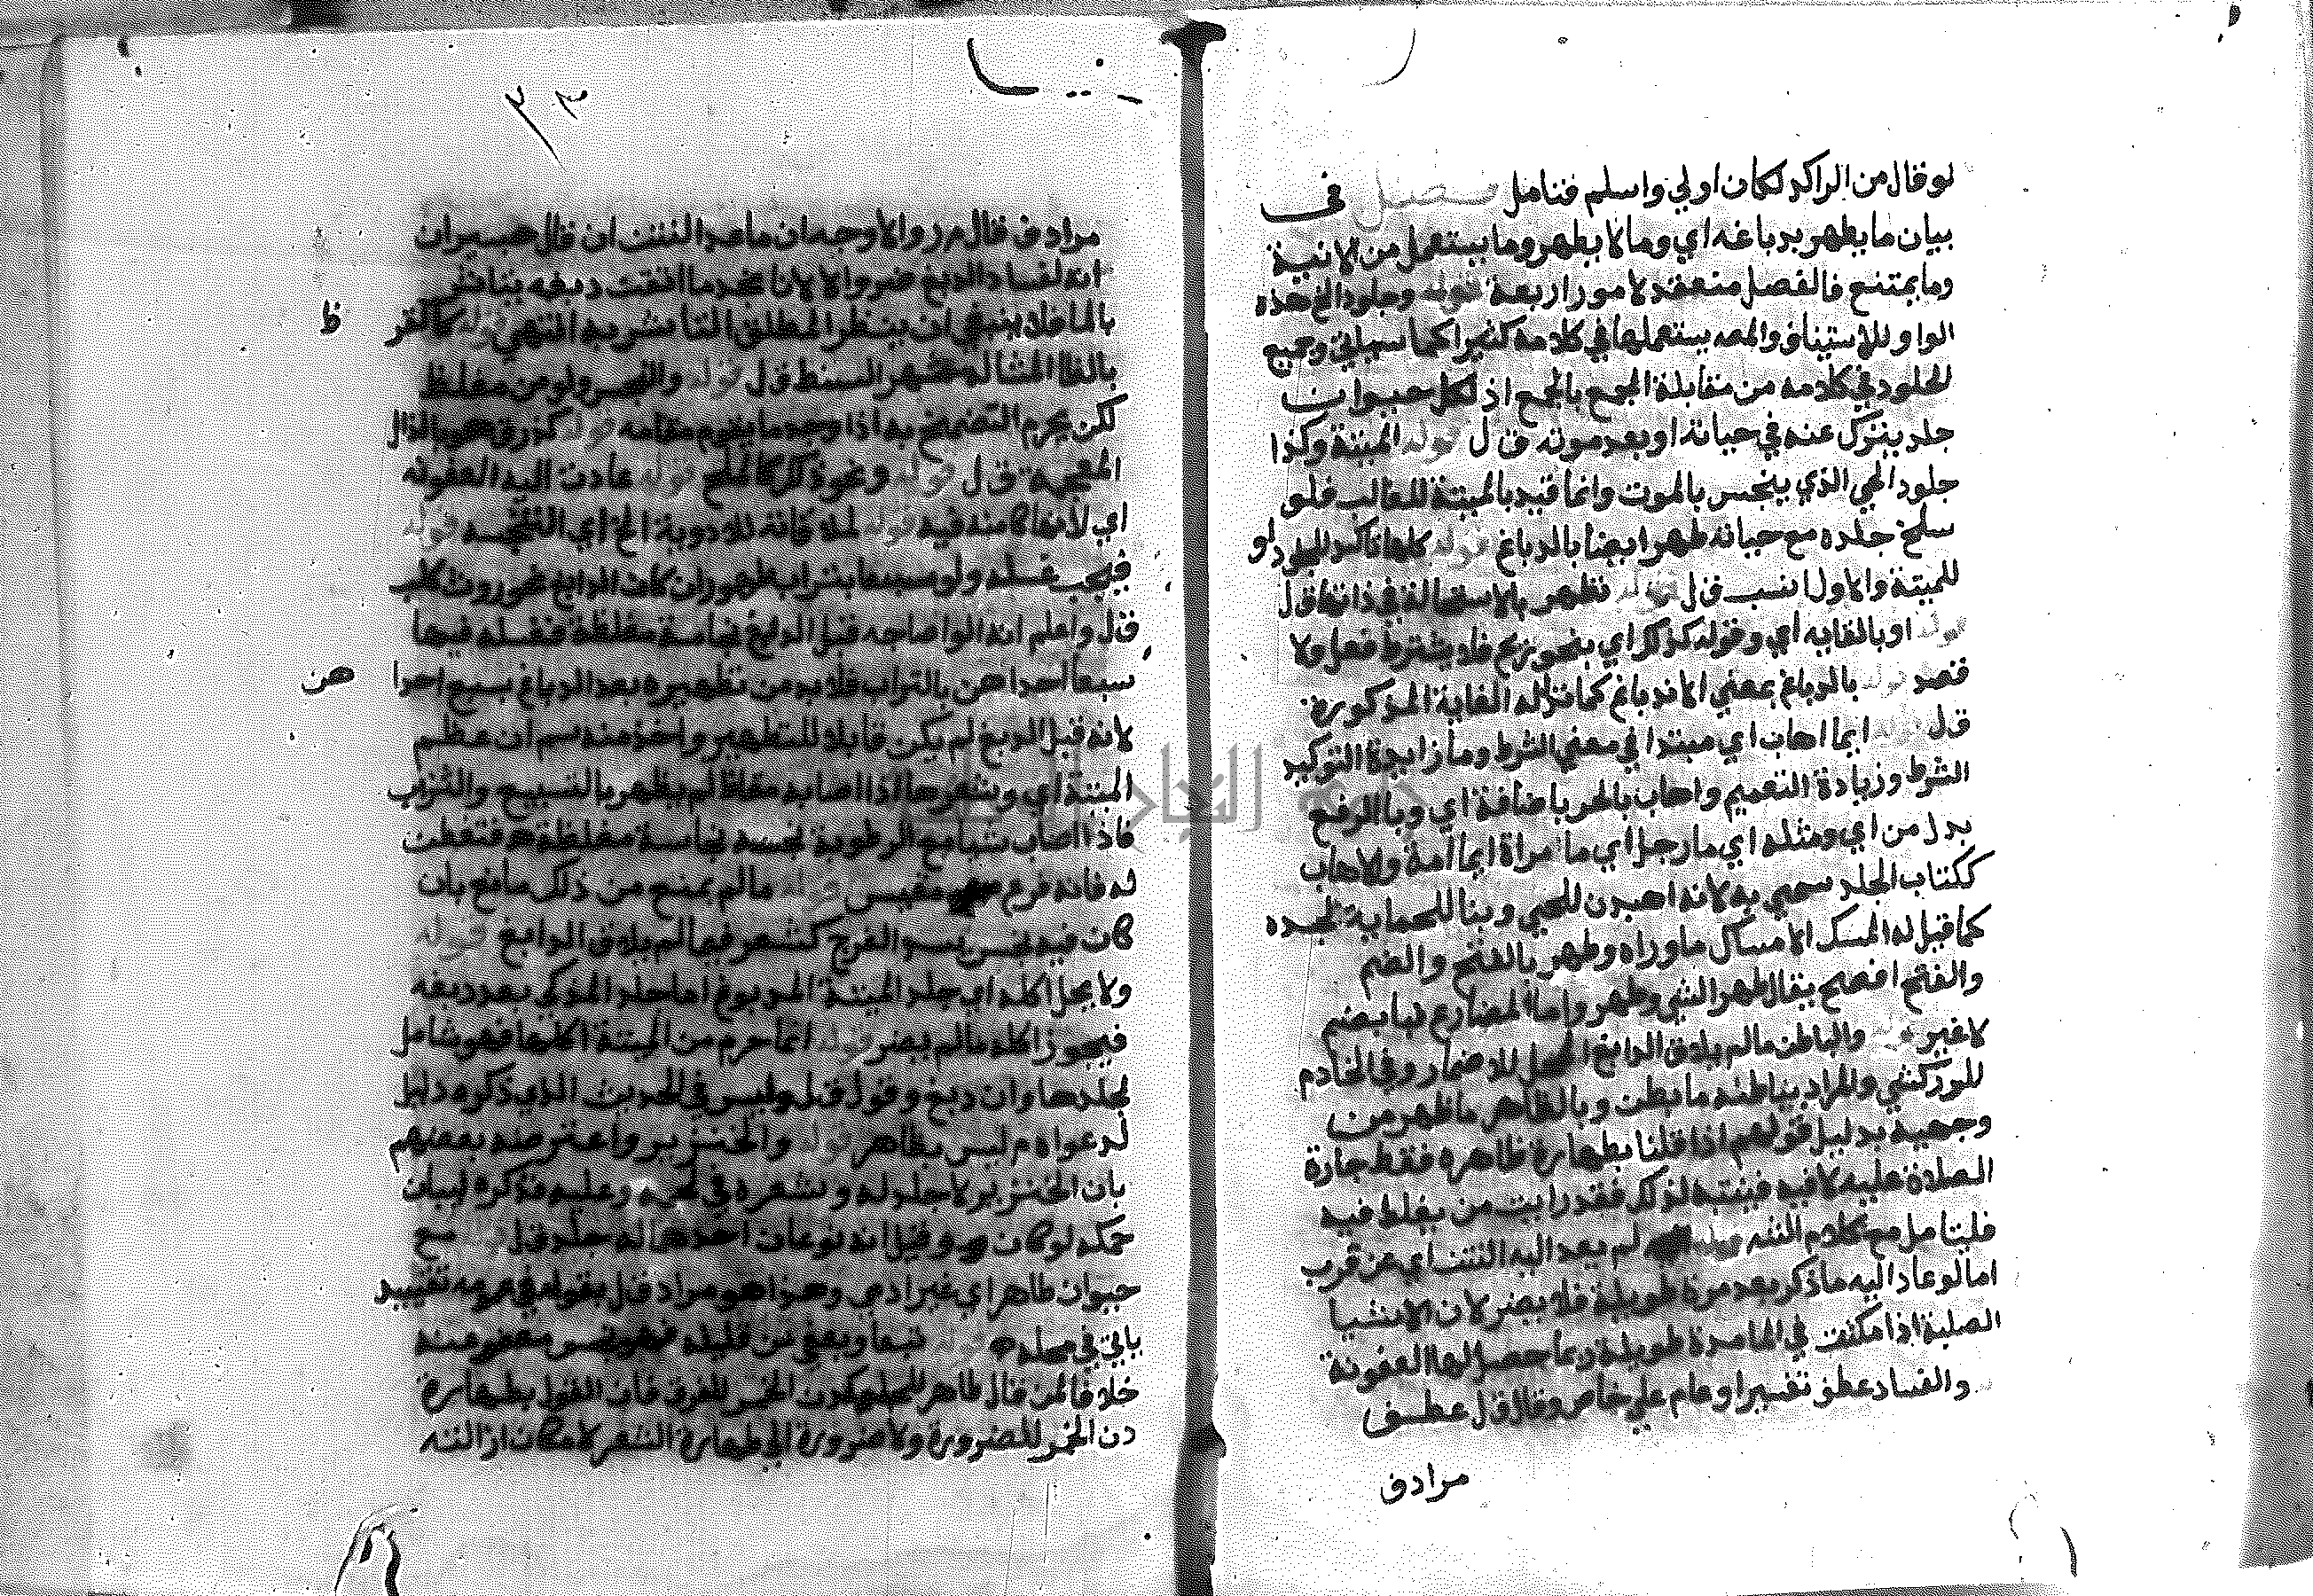 لو قال من الراكد لكان اولي واسلم فتامل فصل في
بيان ما يطهر بدباغه اي وما لا يطهر وما يستعمل من الانية
وما يمتنع فالفصل منعقد لامور اربعة قوله وجلود الخ هذه
الواو للاستيناف والمصه يستعملها في كلامه كثيرا كما سياتي وجمع
الجلود في كلامه من مقابلة الجمع بالجمع اذ لكل حيوان
جلد ينزل عنه في حياته او بعد موته ق ل قوله الميتة وكذا
جلود الحي الذي ينجس بالموت وانما قيد بالميتة للغالب فلو
سلخ جلده مع حياته طهر ايضا بالدباغ قوله كلها تاكيد للجلود او
للميتة والاول انسب ق ل قوله تطهر بالاستحالة في ذاتها ق ل
قوله او بالقايه اي وقوله كذكر اي بنحو ريح فلا يشترط فعل ولا
قصد قوله بالدباغ بمعني الاندباغ كما تزاله الغاية المذكورة
ق ل قوله ايما اهاب اي مبتدا في معني الشرط وما زايدة لتوكيد
الشرط وزيادة التعميم واهاب بالجر باضافة اي وبالرفع
بدل من اي ومثله اي ما رجل اي ما امراة ايما امة والاهاب
ككتاب الجلد سمي به لانه اهبة للحي وبنا للحماية لجسده
كما قيل له المسك لامساك ما وراه وطهر بالفتح والضم
والفتح افصح يقال طهر الشي وطهر واما المضارع فبالضم
لا غير قوله والباطن ما لم يلاق الدابغ المحل للاضمار وفي الخادم
للزركشي والمراد بباطنه ما بطن وبالظاهر ما ظهر من
وجهيه بدليل قولهم اذا قلنا بطهارة ظاهره فقط جازة
الصلاة عليه لا فيه فينتبه لذلك فقد رايت من يغلط فيه
فليتامل مع كلام الشه قوله لم يعد اليه النتن اي عن قرب
اما لو عاد اليه ما ذكر بعد مدة طويلة فلا يضر لان الاشيا
الصلبة اذا مكثت في الماء مدة طويلة ربما حصل لها العفونة
والفساد عطف تفسير او عام علي خاص وقال ق ل عطف
مرادف
٣٢
مرادف قال م ر والاوجه ان ما عدا النتن ان قال خبيران
انه لفساد الدبغ ضر والا لان نجد ما اتقت دبغه يتاثر
بالماء فلا ينبغي ان ينظر لمطلق التاثر به انتهي قوله كالقر
بالظا المشالة السنط ق ل قوله والنجس ولو من مغلظ
لكن يحرم التضمخ به اذا وجد ما يقوم مقامه قوله كذرق هو بالذال
المعجمة ق ل قوله ونحو ذلك كالملح قوله عادت اليه العفونة
اي لانها كامنة فيه قوله لملاقاته للادوية الخ اي النجسة قوله
فيجب غسله ولو سبعا بتراب طهور ان كان الدابغ نحو روث كلب
ق ل واعلم انه لو اصابه قبل الدبغ نجاسة مغلظة فغسله فيها
سبعا احداهن بالتراب فلا بد من تطهيره بعد الدباغ بسبع احدا هن
لانه قبل الدبغ لم يكن قابلا للتطهير واخذ منه سم ان عظم
الميتة اي وشعرها اذا اصابه مغلظ لم يطهر بالتسبيع والتراب
فاذا اصاب شيا مع الرطوبة نجسه نجاسة مغلظة فتفطن
له فانه فرع نفيس قوله ما لم يمنع من ذلك مانع بان
كان فيه
ولا يحل اكله اي جلد الميتة المدبوغ اما جلد المذكي بعد دبغه
فيجوز اكله ما لم يضر قوله انما حرم من الميتة اكلها فهو شامل
لجلدها وان دبغ وقول ق ل وليس في الحديث الذي ذكره دليل
لدعواه م ليس بظاهر قوله والخنزير واعترضه بعضهم
بان الخنزير لا جلد له وشعره في لحمه وعليه فذكره لبيان
حكمه لو كان وقيل انه نوعان احدهما له جلد ق ل مع
حيوان طاهر اي غير ادمي وهذا هو مراد ق ل بقوله في عمومه تقييد
ياتي في محله قوله تبعا ويعفي عن قليله فهو نجس معفو عنه
خلافا لمن قال طاهر للمجاورة كدن الخمر للفرق فان القول بطهارة
دن الخمر للضرورة ولا ضرورة الي طهارة الشعر لامكان ازالته